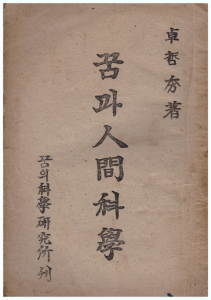 卓哲秀著
꿈과人間科學
꿈의科學硏究所刊